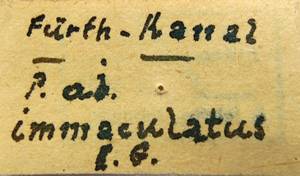 Fürth-Kanal
P. ab.
immaculatus
E. G.